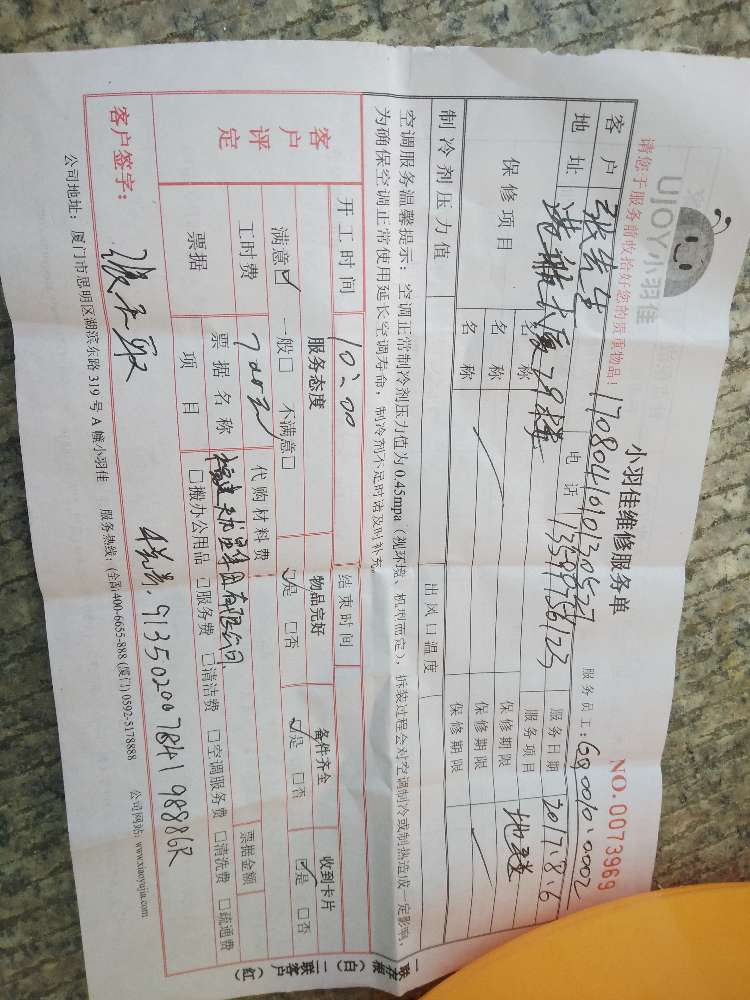 UJOY小羽佳
小羽佳维修服务单
NO.0073969
请您于服务前收拾好您的贵重物品！
170804101013052
服务员工：
客户 张先生 电话 13599756123 服务日期 2017.8.6
地址 港航大厦29楼 服务项目 地毯
保修项目 名称 保修期限
名称 保修期限
名称 保修期限
制冷剂压力值 出风口温度
空调服务温馨提示：空调正常制冷剂压力值为0.45mpa（视环境、机型而定），拆装过程会对空调制冷或制热造成一定影响，
为确保空调正常使用延长空调寿命，制冷剂不足时请及时补充。
开工时间 10:00 结束时间
客户评定 服务态度 物品完好 备件齐全 收到卡片
满意☑ 一般□ 不满意□ ☑是 □否 ☑是 □否 ☑是 □否
工时费 700元 代购材料费
票据 票据名称 福建 集团有限公司 票据金额
项目 □搬办公用品 □服务费 □清洁费 □空调服务费 □清洗费 □疏通费
客户签字：
91350200784198886R
公司地址：厦门市思明区湖滨东路319号A幢小羽佳 服务热线：(全国)400-6655-888 (厦门) 0592-5178888 公司网站：www.xiaoyujia.com
一联存根（白） 二联客户（红）